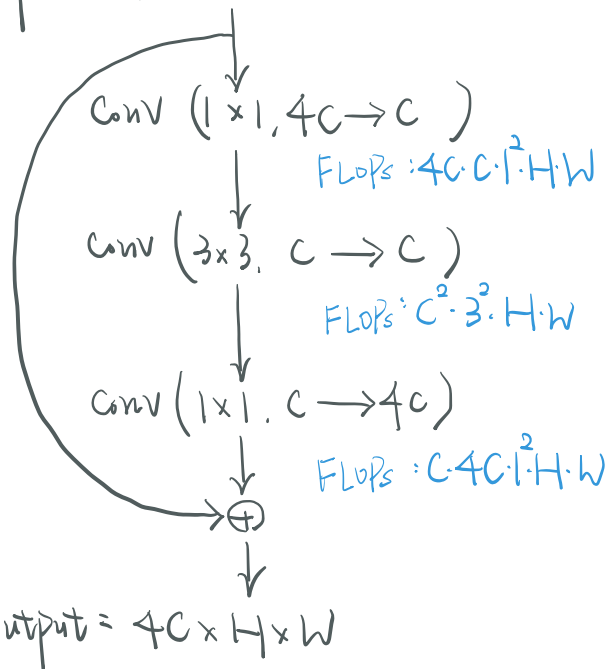 Conv (1×1, 4C→C)
FLOPs: 4C·C·1²·H·W
Conv (3×3, C→C)
FLOPs: C²·3²·H·W
Conv (1×1, C→4C)
FLOPs: C·4C·1²·H·W
+
utput = 4C×H×W